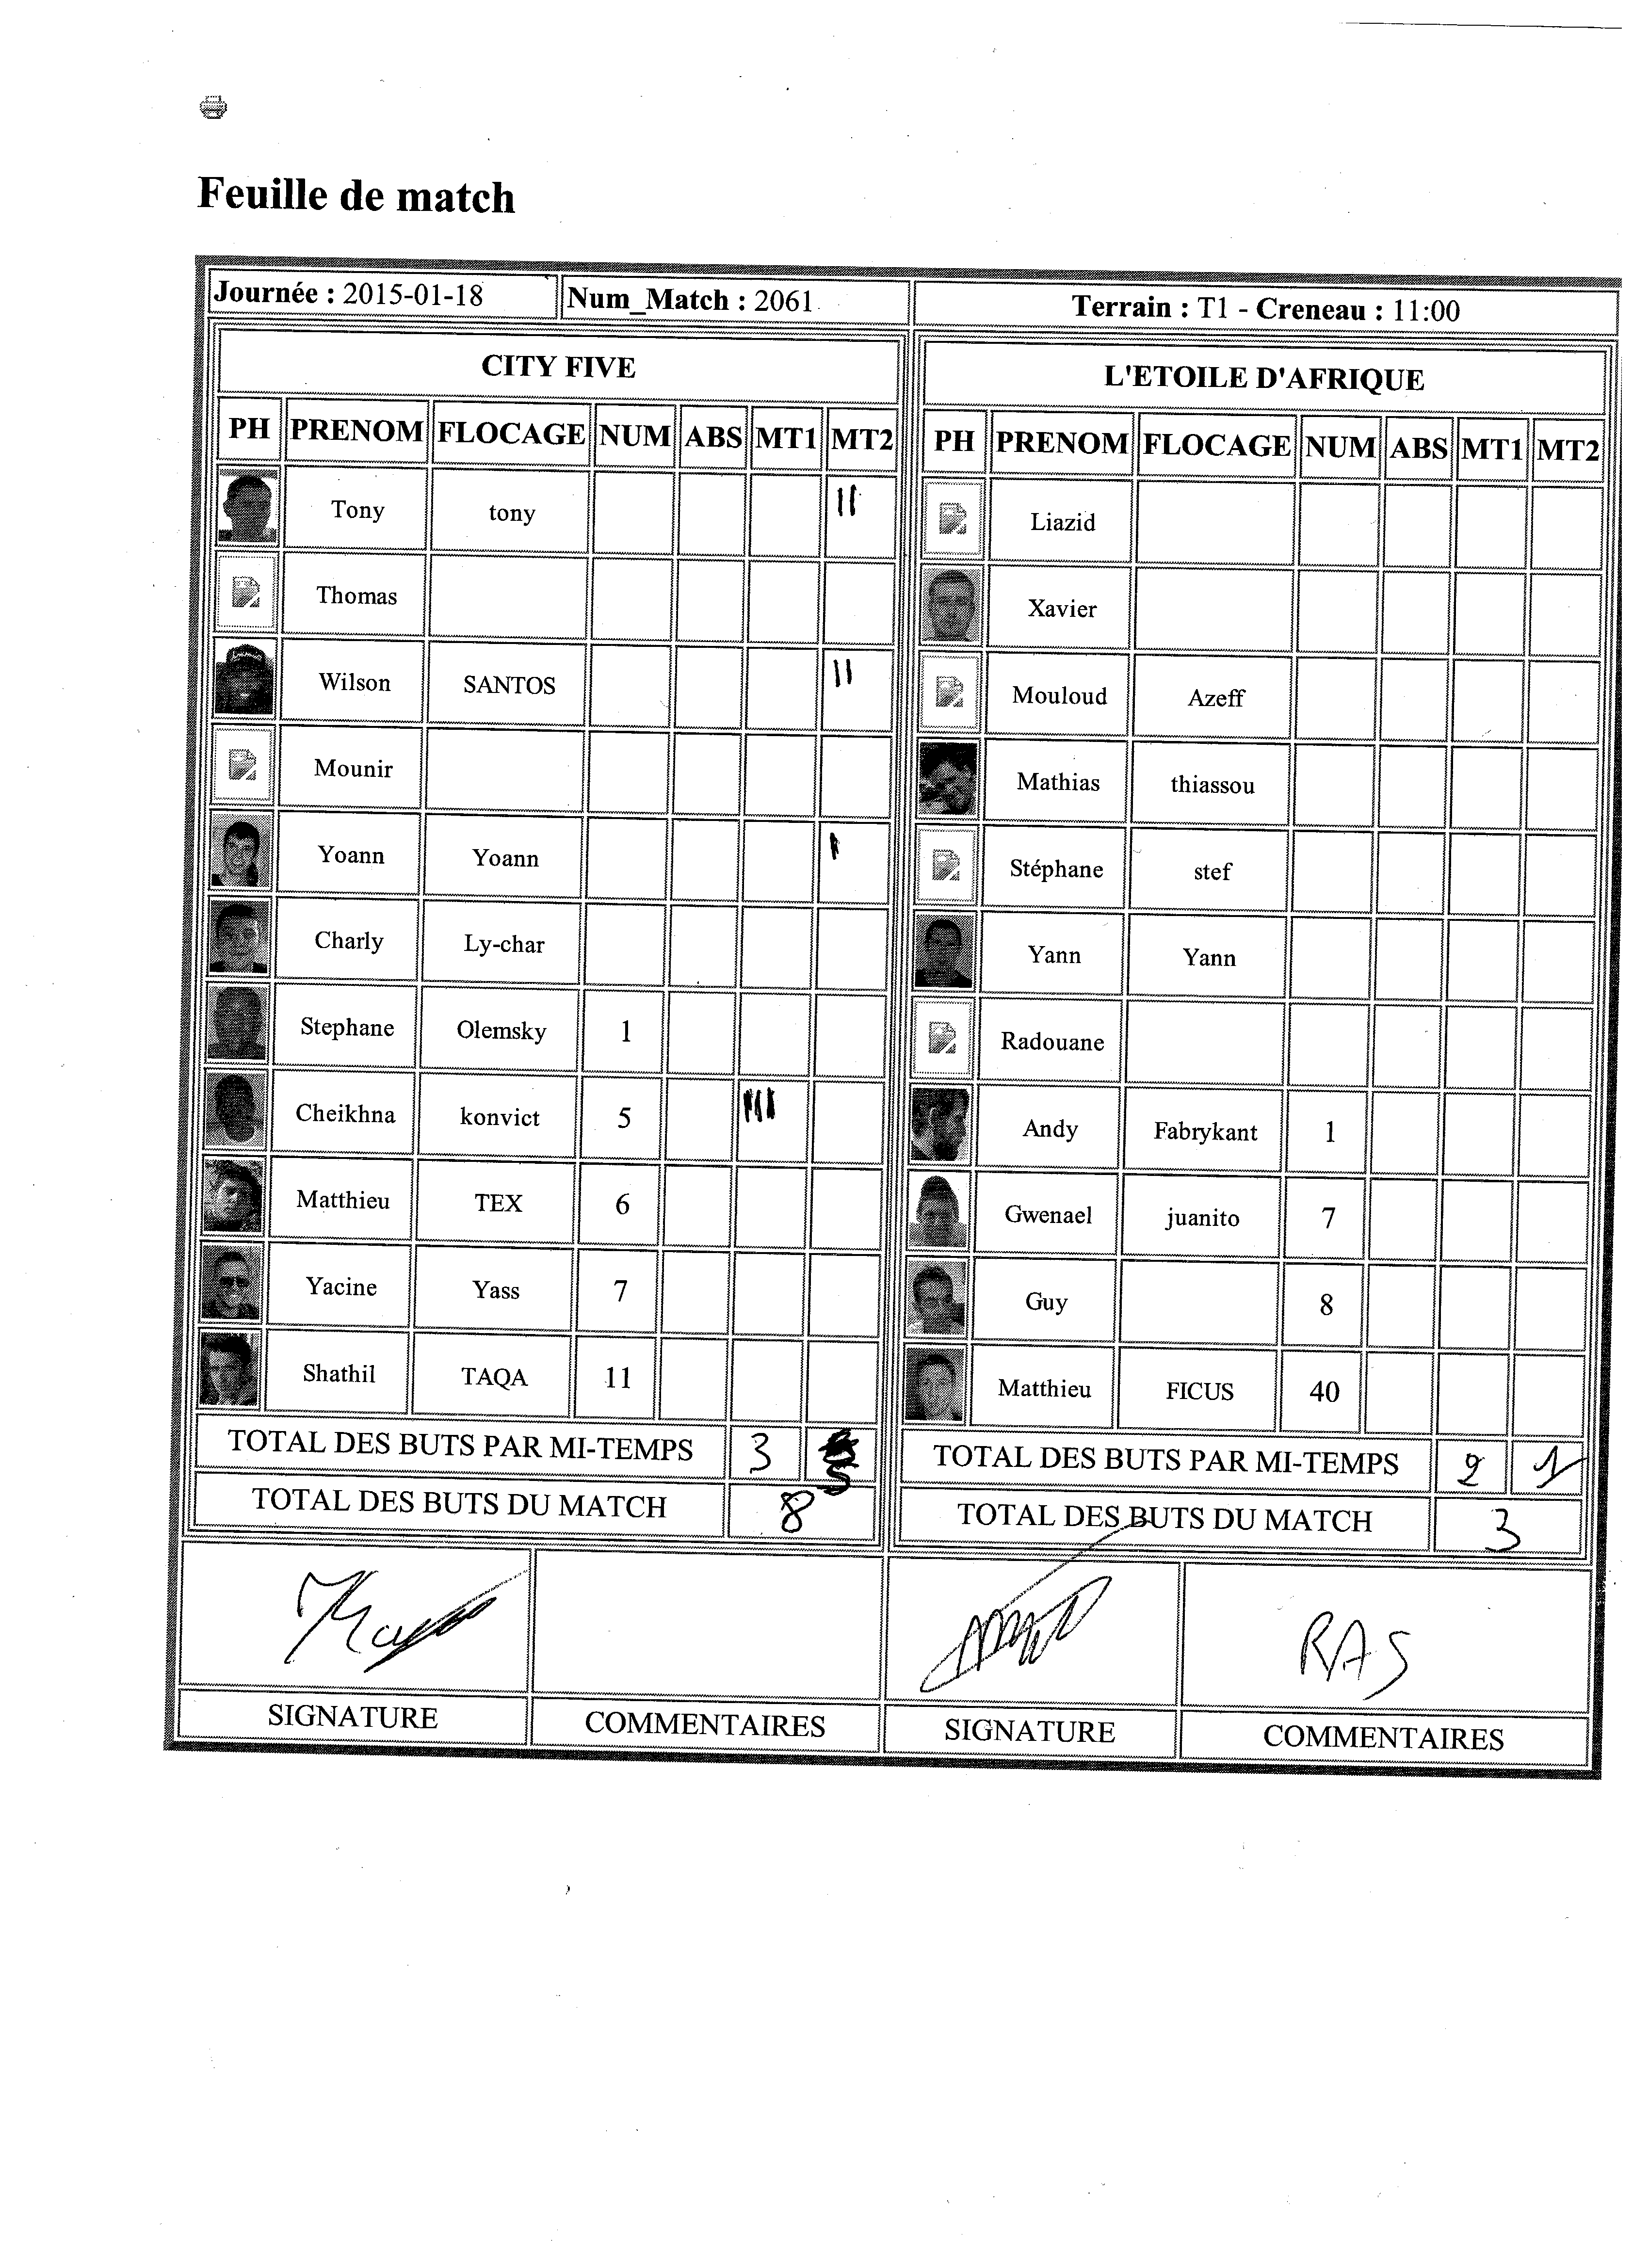 Feuille de match
Journée : 2015-01-18 Num_Match : 2061 Terrain : T1 - Creneau : 11:00
CITY FIVE
PH PRENOM FLOCAGE NUM ABS MT1 MT2
Tony tony II
Thomas
Wilson SANTOS II
Mounir
Yoann Yoann I
Charly Ly-char
Stephane Olemsky 1
Cheikhna konvict 5 III
Matthieu TEX 6
Yacine Yass 7
Shathil TAQA 11
TOTAL DES BUTS PAR MI-TEMPS 3 5
TOTAL DES BUTS DU MATCH 8
SIGNATURE COMMENTAIRES
L'ETOILE D'AFRIQUE
PH PRENOM FLOCAGE NUM ABS MT1 MT2
Liazid
Xavier
Mouloud Azeff
Mathias thiassou
Stéphane stef
Yann Yann
Radouane
Andy Fabrykant 1
Gwenael juanito 7
Guy 8
Matthieu FICUS 40
TOTAL DES BUTS PAR MI-TEMPS 2 1
TOTAL DES BUTS DU MATCH 3
RAS
SIGNATURE COMMENTAIRES